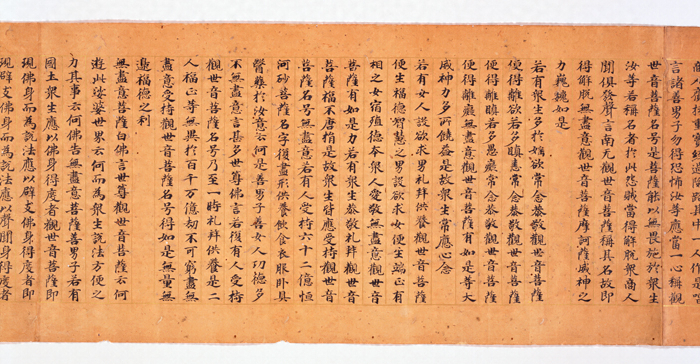 言諸善男子勿得恐怖汝等應當一心稱觀
世音菩薩名号是菩薩能以無畏施於衆生
汝等若稱名者於此怨賊當得解脫衆商人
聞俱發聲言南无觀世音菩薩稱其名故即
得解脫無盡意觀世音菩薩摩訶薩威神之
力巍巍如是
若有衆生多於婬欲常念恭敬觀世音菩薩
便得離欲若多瞋恚常念恭敬觀世音菩薩
便得離瞋若多愚癡常念恭敬觀世音菩薩
便得離癡無盡意觀世音菩薩有如是等大
威神力多所饒益是故衆生常應心念
若有女人設欲求男礼拜供養觀世音菩薩
便生福德智慧之男設欲求女便生端正有
相之女宿殖德本衆人愛敬無盡意觀世音
菩薩有如是力若有衆生恭敬礼拜觀世音
菩薩福不唐捐是故衆生皆應受持觀世音
菩薩名号無盡意若有人受持六十二億恒
河砂菩薩名字復盡形供養飲食衣服卧具
醫藥於汝意云何是善男子善女人功德多
不無盡意言甚多世尊佛言若復有人受持
觀世音菩薩名号乃至一時礼拜供養是二
人福正等無異於百千万億劫不可窮盡無
盡意受持觀世音菩薩名号得如是無量無
邊福德之利
無盡意菩薩白佛言世尊觀世音菩薩云何
遊此娑婆世界云何而為衆生說法方便之
力其事云何佛告無盡意菩薩善男子若有
國土衆生應以佛身得度者觀世音菩薩即
現佛身而為說法應以辟支佛身得度者即
現辟支佛身而為說法應以聲聞身得度者